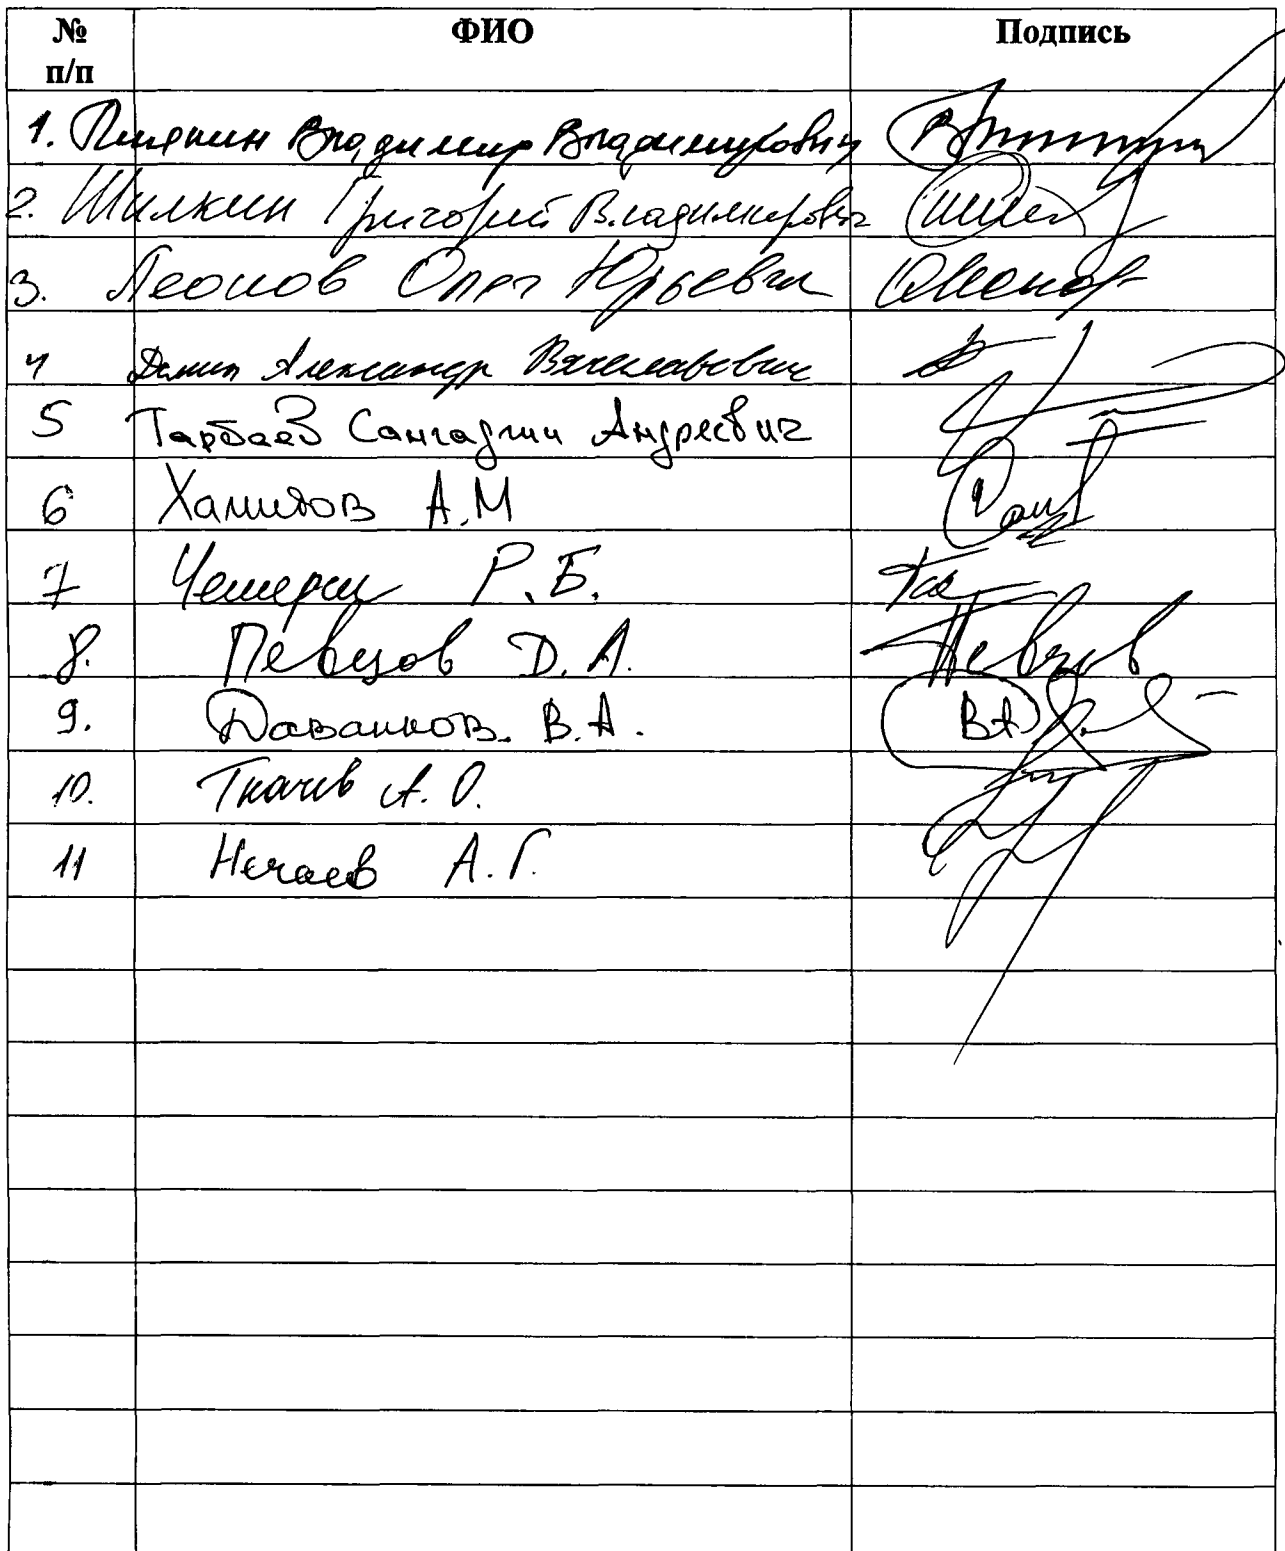 № п/п ФИО Подпись
1. Плякин Владимир Владимирович
2. Шилкин Григорий Владимирович
3. Леонов Олег Юрьевич
4 Демин Александр Вячеславович
5 Тарбаев Сангаджи Андреевич
6 Хамитов А.М
7 Чемерис Р.Б.
8. Певцов Д.А. Певцов
9. Даванков. В.А. ВД
10. Ткачев А.О.
11 Нечаев А.Г.